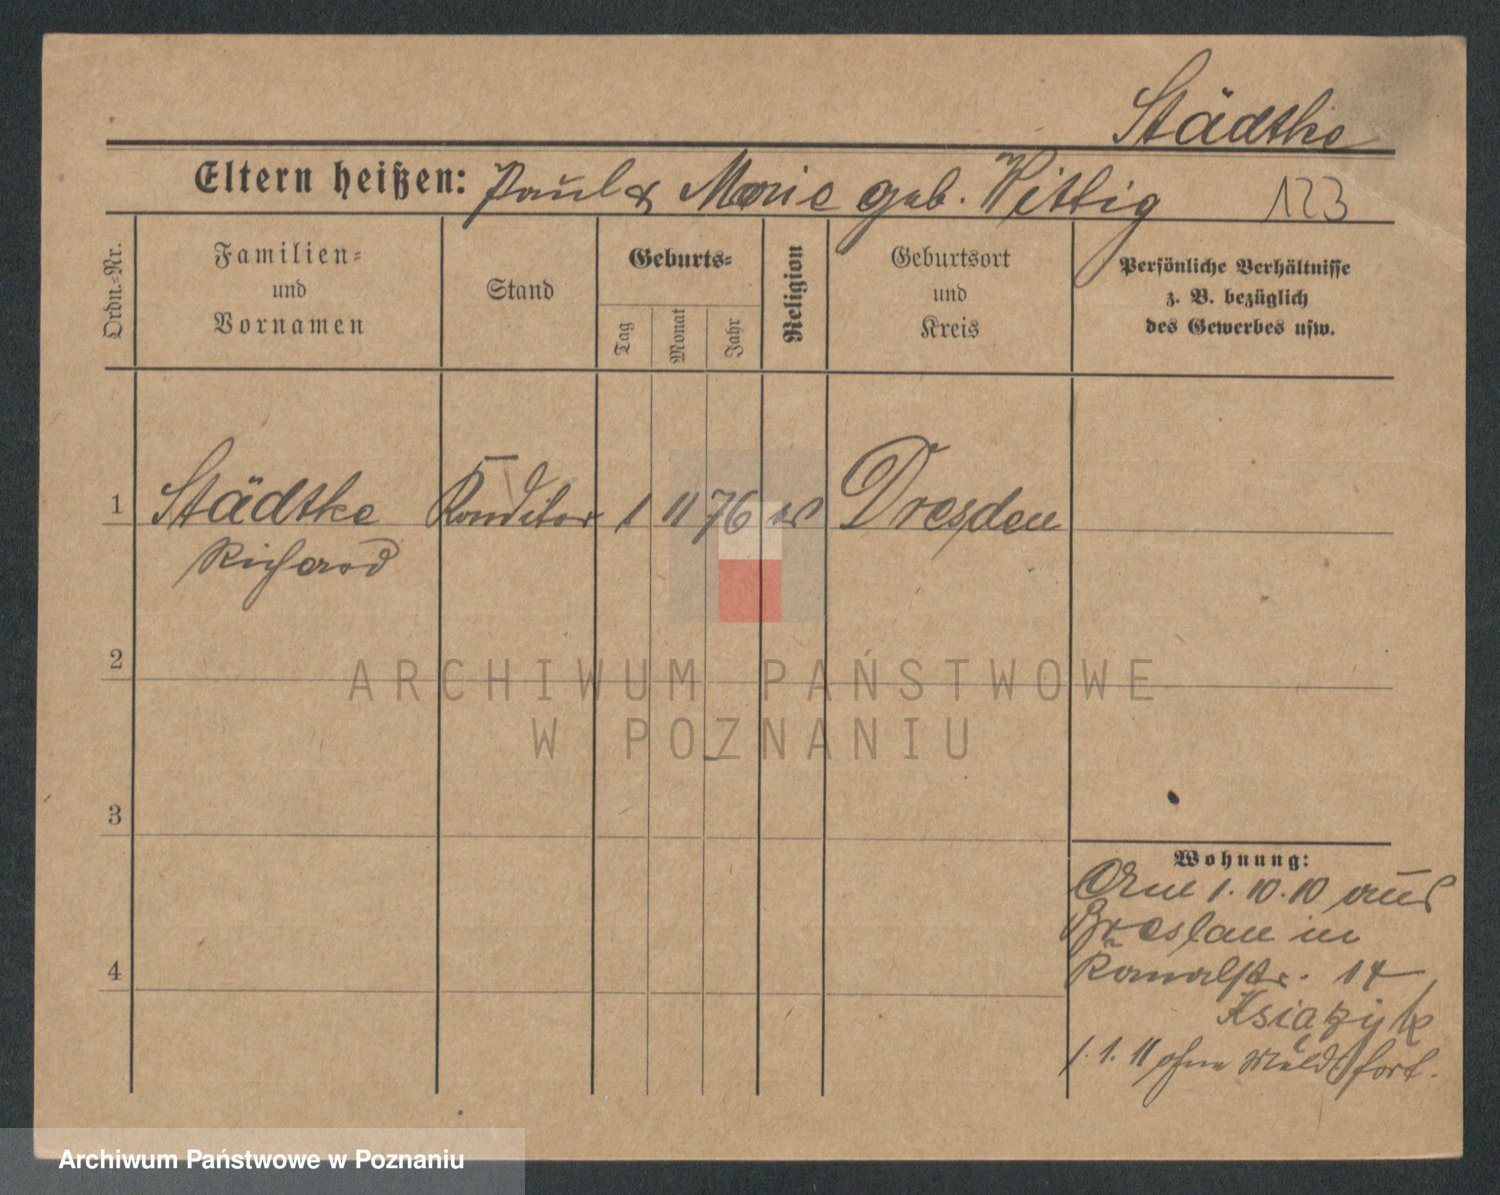 Städtke
Eltern heißen: Paul & Marie geb. Wittig 123
Ordn.-Nr.
Familien-
und
Vornamen
Stand
Geburts-
Tag
Monat
Jahr
Religion
Geburtsort
und
Kreis
Persönliche Verhältnisse
z. B. bezüglich
des Gewerbes usw.
1 Städtke Konditor 1 11 76 ev Dresden
Richard
2
3
4
Wohnung:
1.10.10 aus
Breslau in
Kanalstr. 14
Ksiązyk
1.1.11 ohne Meld. fort.
ARCHIWUM PAŃSTWOWE
W POZNANIU
Archiwum Państwowe w Poznaniu